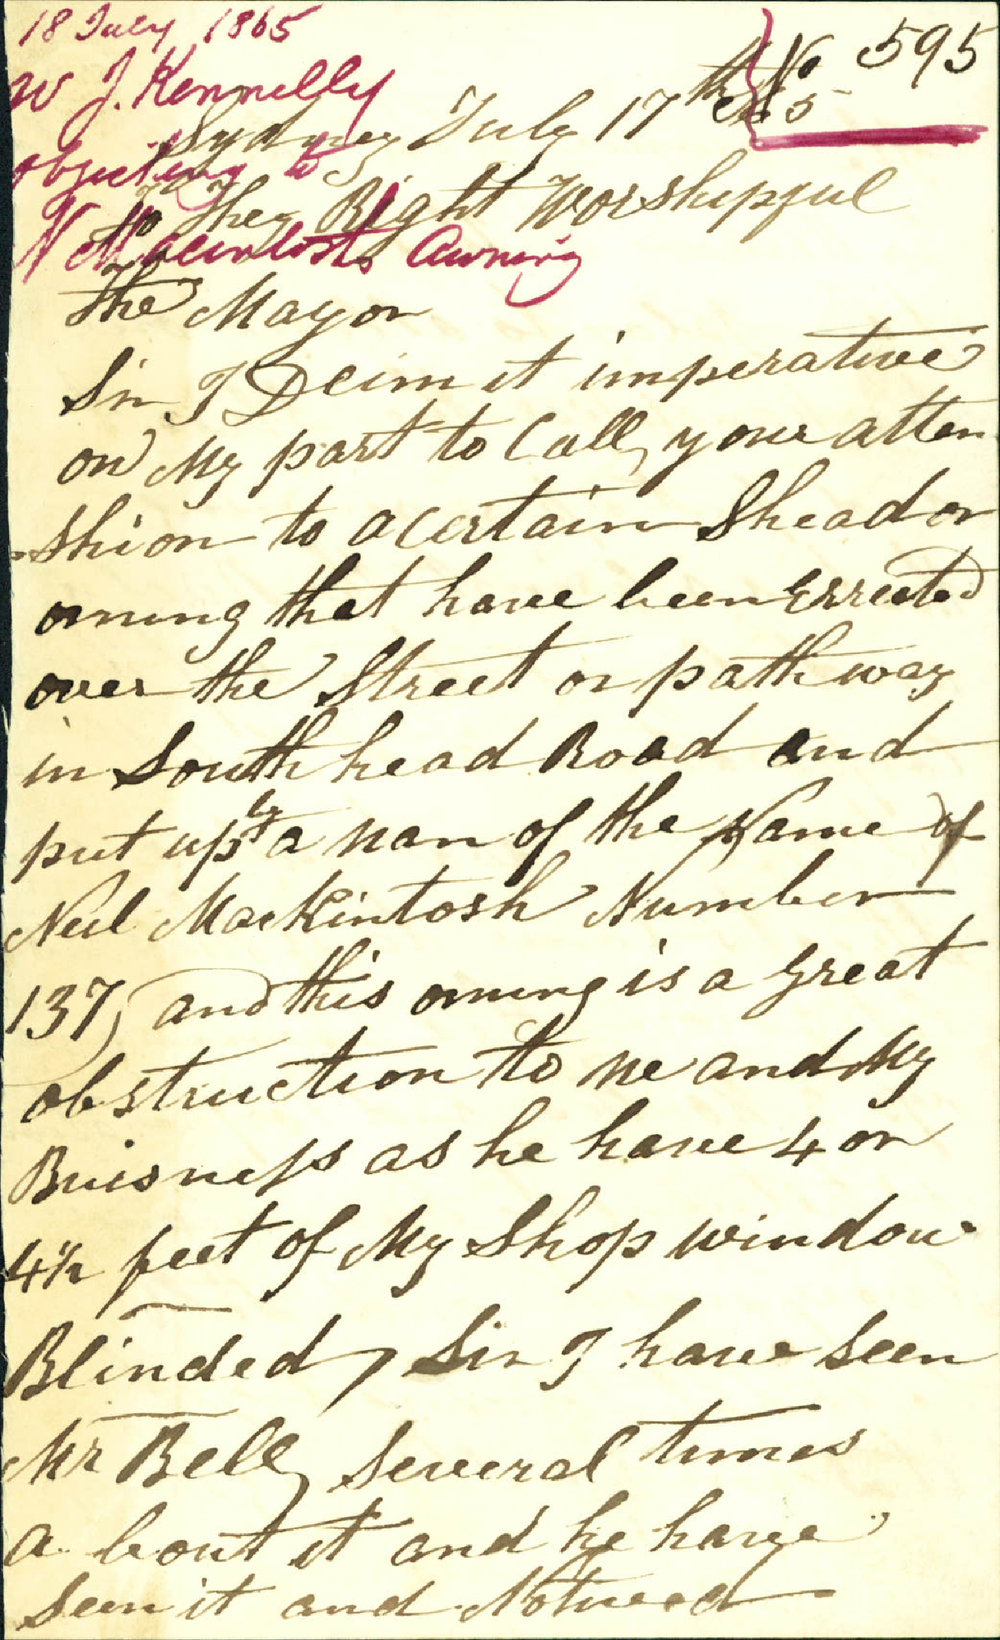 18 July 1865
No 595
W J. Kennelly
Sydney July 17th 65
objecting to
To They Right Worshipful
N McIntosh's Awning
The Mayor
Sir I Deim it imperative
on My part to Call your atten
-shion to a certain Shead or
oning that have been Errected
over the Street or path way
in South head Road and
put up by a man of the Name of
Neil MacKintosh Number
137, and this oning is a great
obstruction to me and My
Buisness as he have 4 or
4 1/2 feet of My Shop window
Blinded, Sir I have Seen
Mr Bell, Several times
a bout it and he have
Seen it and Notreed